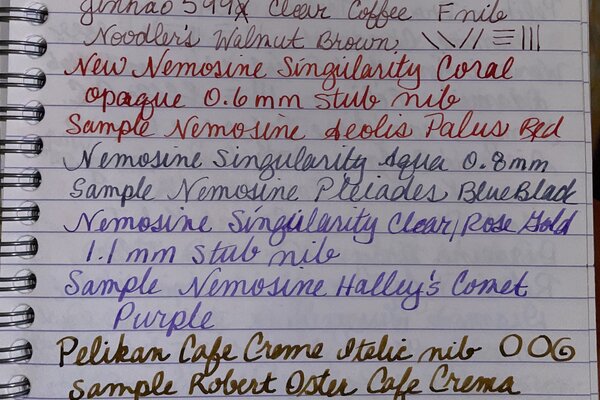 Jinhao 599X Clear Coffee F nib
Noodler's Walnut Brown
New Nemosine Singularity Coral
opaque 0.6 mm Stub nib
Sample Nemosine Aeolis Palus Red
Nemosine Singularity Aqua 0.8mm
Sample Nemosine Pleiades BlueBlack
Nemosine Singularity Clear/Rose Gold
1.1 mm Stub nib
Sample Nemosine Halley's Comet
Purple
Pelikan Cafe Creme Italic nib
Sample Robert Oster Cafe Crema